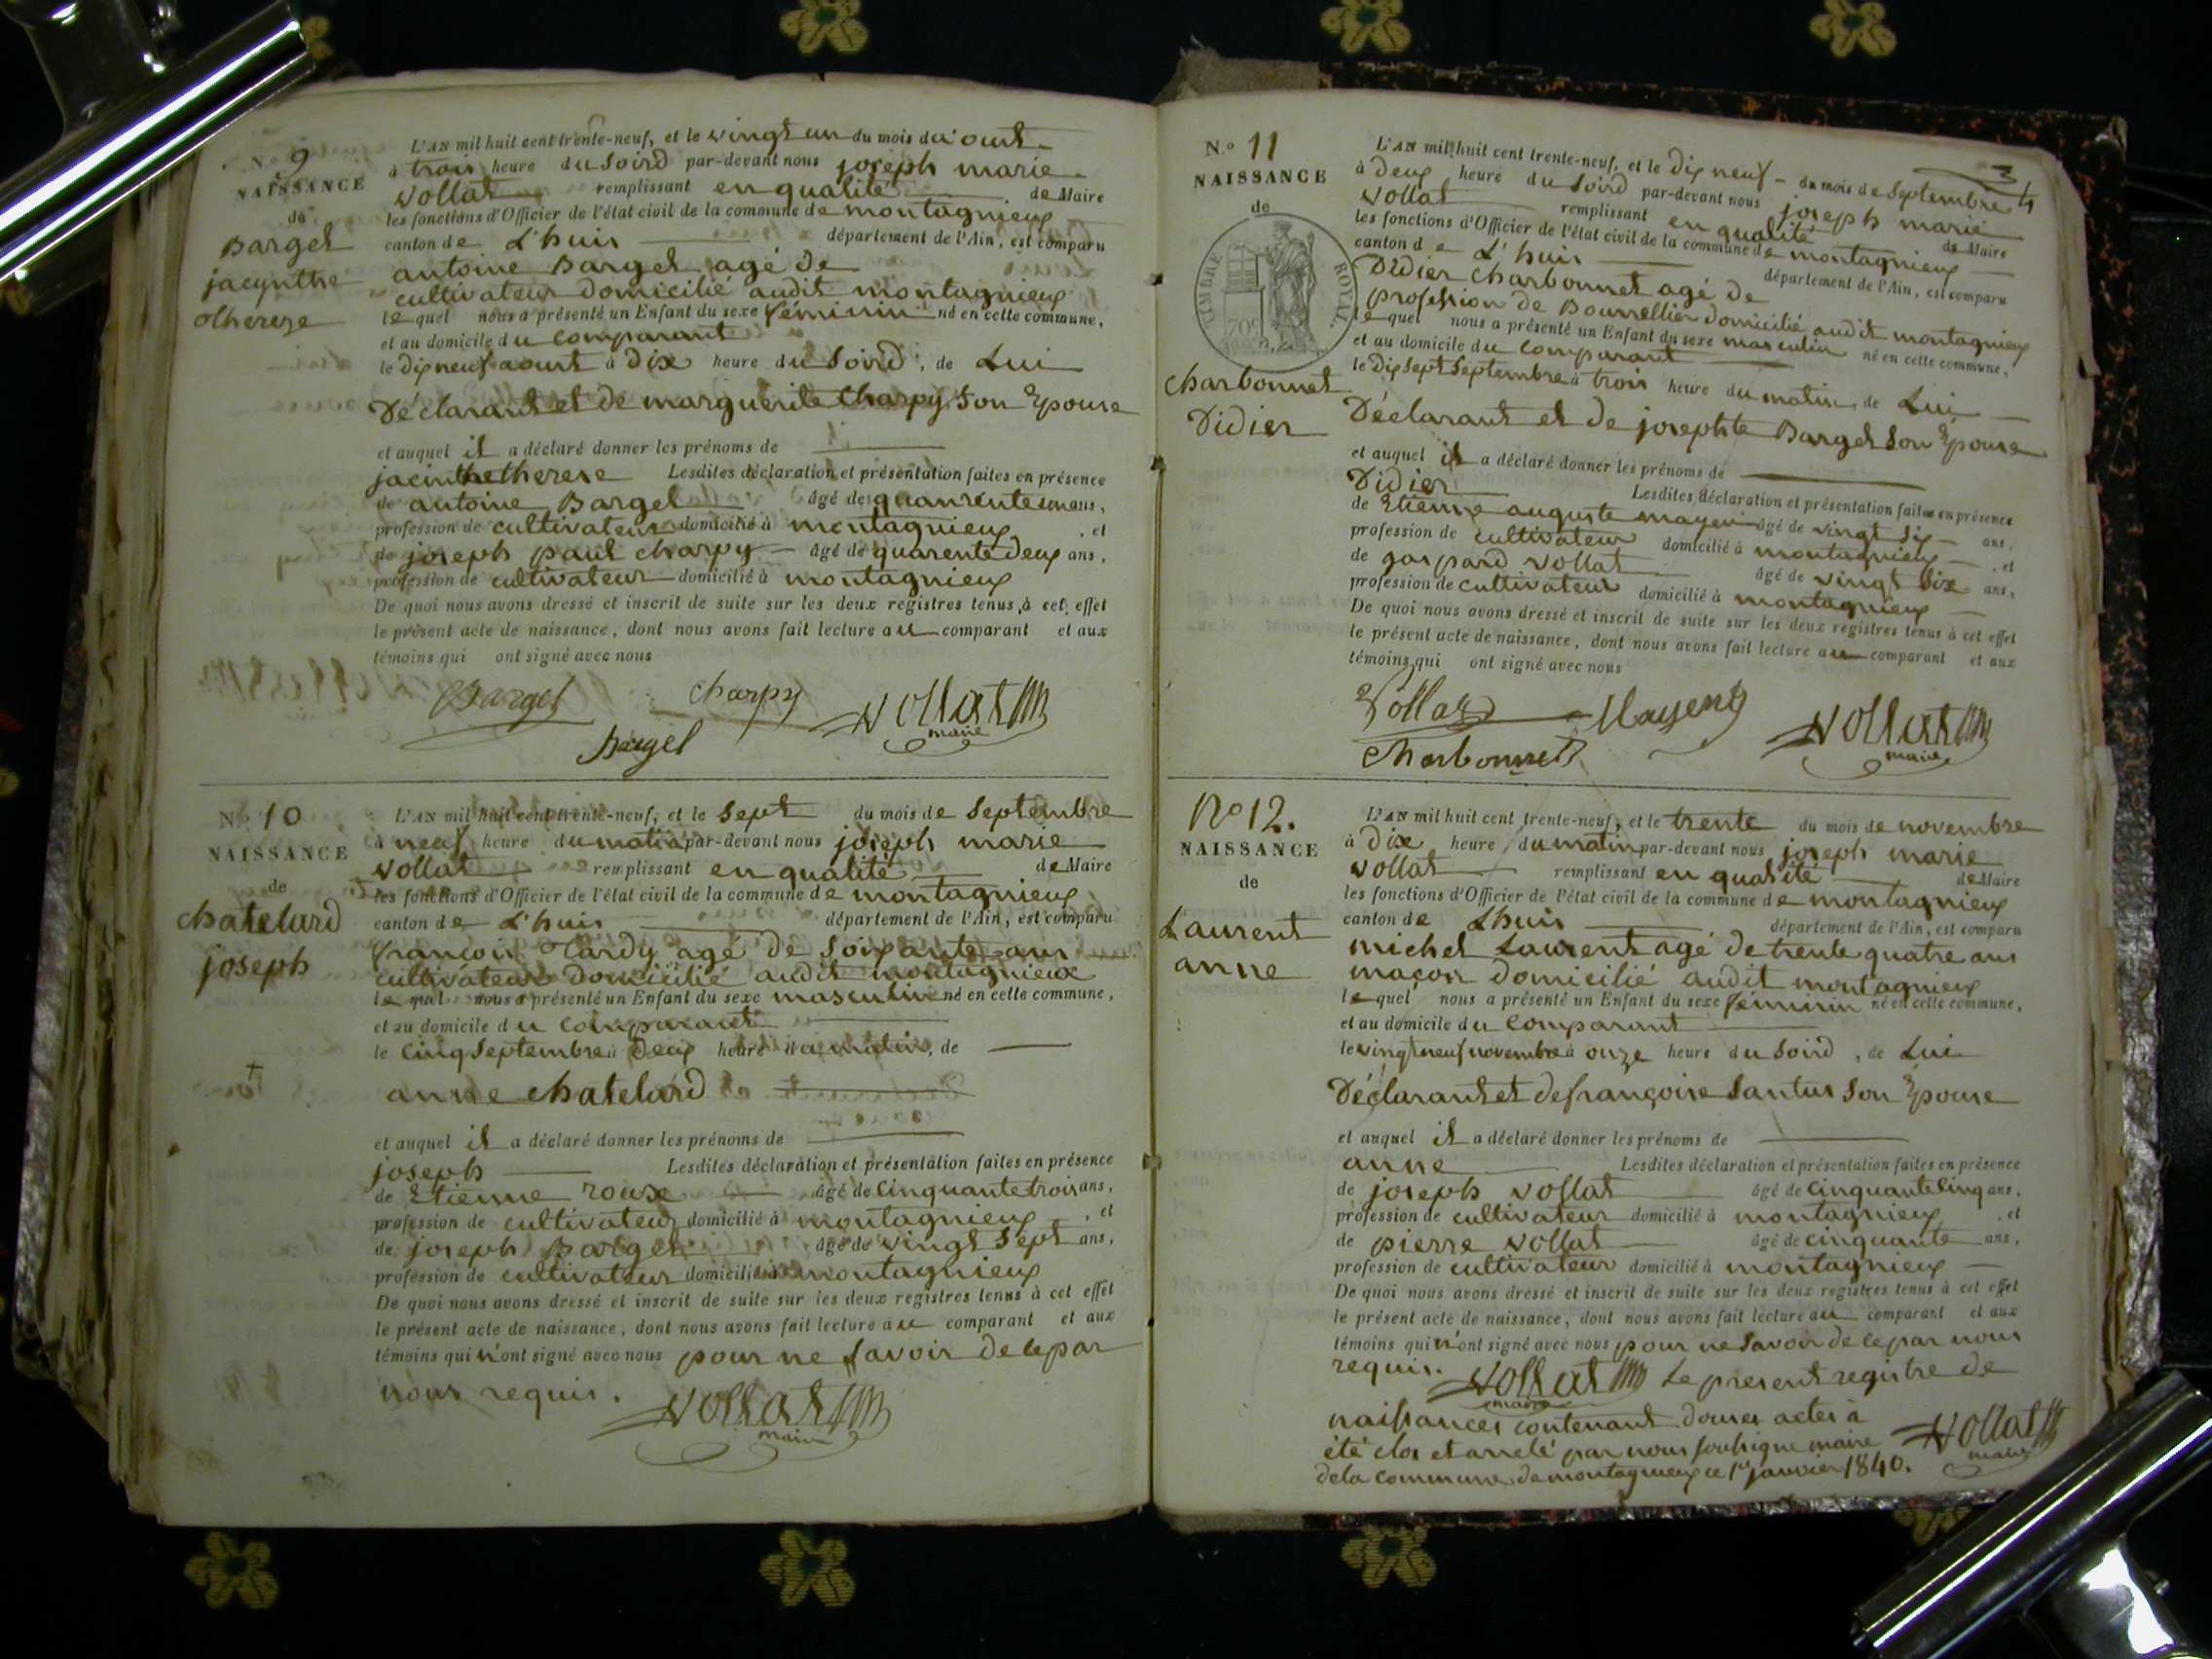 N.o 9
NAISSANCE
de
Barget
jacynthe
therese
L'AN mil huit cent trente-neuf, et le vingt un du mois d'aout
à trois heure du soird par-devant nous joseph marie
vollat remplissant en qualité de Maire
les fonctions d'Officier de l'état civil de la commune de montagnieux
canton de L'huis département de l'Ain, est comparu
antoine Barget agé de
cultivateur domicilié audit montagnieux
lequel nous a présenté un Enfant du sexe féminin né en cette commune,
et au domicile du comparant
le dix neuf aout à dix heure du soird, de Lui
Déclarant et de marguerite Charpy son Epouse
et auquel il a déclaré donner les prénoms de
jacinthe therese Lesdites déclaration et présentation faites en présence
de antoine Barget âgé de quanrente un ans,
profession de cultivateur domicilié à montagnieux, et
de joseph paul charpy âgé de quarente deux ans,
profession de cultivateur domicilié à montagnieux
De quoi nous avons dressé et inscrit de suite sur les deux registres tenus à cet effet
le présent acte de naissance, dont nous avons fait lecture au comparant et aux
témoins qui ont signé avec nous
Barget charpy vollat
maire
Barget
N.o 10
NAISSANCE
de
chatelard
joseph
L'AN mil huit cent trente-neuf, et le sept du mois de septembre
à neuf heure du matin par-devant nous joseph marie
vollat remplissant en qualité de Maire
les fonctions d'Officier de l'état civil de la commune de montagnieux
canton de L'huis département de l'Ain, est comparu
françois Tardy agé de soixante ans
cultivateur domicilié audit montagnieux
lequel nous a présenté un Enfant du sexe masculin né en cette commune,
et au domicile du comparant
le cinq septembre à deux heure du matin, de
anne chatelard
et auquel il a déclaré donner les prénoms de
joseph Lesdites déclaration et présentation faites en présence
de Etienne roux âgé de cinquante trois ans,
profession de cultivateur domicilié à montagnieux, et
de joseph Barget âgé de vingt sept ans,
profession de cultivateur domicilié à montagnieux
De quoi nous avons dressé et inscrit de suite sur les deux registres tenus à cet effet
le présent acte de naissance, dont nous avons fait lecture au comparant et aux
témoins qui n'ont signé avec nous pour ne savoir de ce par
nous requis. vollat
maire
N.o 11
NAISSANCE
de
TIMBRE ROYAL
70c
charbonnet
Didier
L'AN mil huit cent trente-neuf, et le dix neuf du mois de septembre
à deux heure du soird par-devant nous joseph marie
vollat remplissant en qualité de Maire
les fonctions d'Officier de l'état civil de la commune de montagnieux
canton de L'huis département de l'Ain, est comparu
Didier charbonnet agé de
profession de Bourrellier domicilié audit montagnieux
lequel nous a présenté un Enfant du sexe masculin né en cette commune,
et au domicile du comparant
le dix sept septembre à trois heure du matin, de Lui
Déclarant et de josephte Barget son Epouse
et auquel il a déclaré donner les prénoms de
Didier Lesdites déclaration et présentation faites en présence
de Etienne auguste mayen âgé de vingt six ans,
profession de cultivateur domicilié à montagnieux, et
de gaspard vollat âgé de vingt six ans,
profession de cultivateur domicilié à montagnieux
De quoi nous avons dressé et inscrit de suite sur les deux registres tenus à cet effet
le présent acte de naissance, dont nous avons fait lecture au comparant et aux
témoins qui ont signé avec nous
Vollat vollat
maire
Charbonnet
No 12.
NAISSANCE
de
Laurent
anne
L'AN mil huit cent trente-neuf, et le trente du mois de novembre
à dix heure du matin par-devant nous joseph marie
vollat remplissant en qualité de Maire
les fonctions d'Officier de l'état civil de la commune de montagnieux
canton de Lhuis département de l'Ain, est comparu
michel Laurent agé de trente quatre ans
maçon domicilié audit montagnieux
lequel nous a présenté un Enfant du sexe féminin né en cette commune,
et au domicile du comparant
le vingt neuf novembre à onze heure du soird, de Lui
Déclarant et de françoise santus son Epouse
et auquel il a déclaré donner les prénoms de
anne Lesdites déclaration et présentation faites en présence
de joseph vollat âgé de cinquante cinq ans,
profession de cultivateur domicilié à montagnieux, et
de pierre vollat âgé de cinquante ans,
profession de cultivateur domicilié à montagnieux
De quoi nous avons dressé et inscrit de suite sur les deux registres tenus à cet effet
le présent acte de naissance, dont nous avons fait lecture au comparant et aux
témoins qui n'ont signé avec nous pour ne savoir de ce par nous
requis. vollat Le present registre de
maire
naissances contenant douses actes à
été clos et arreté par nous soussigne maire vollat
de la commune de montagnieux ce 1er janvier 1840. maire